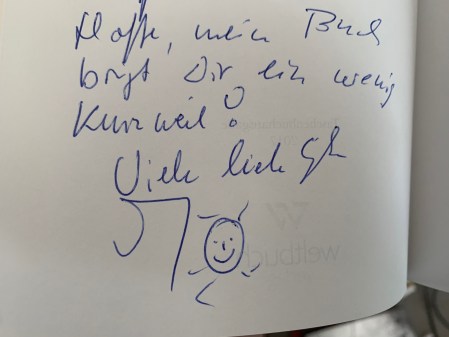 Hoffe, mein Buch
bringt Dir ein wenig
Kurzweil!
Viele liebe
weltbuch